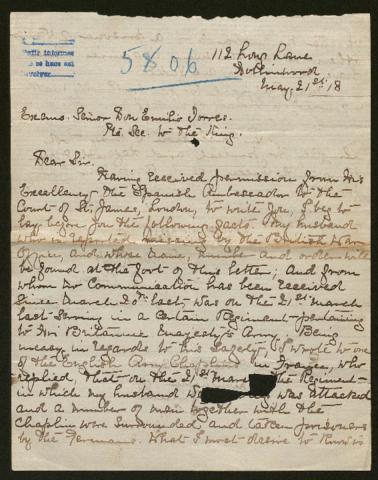 5806
112 Long Lane
Hollinwood
May, 21st/18
Excmo. Señor Don Emilio Torres.
Pte. Sec. to The King.
Dear Sir.
Having received permission from His
Excellency The Spanish Ambassador to the
Court of St. James, London, to write you, I beg to
lay before you the following facts. My husband
who is reported missing by the British War
Office, and whose name, number and address will
be found at the foot of this letter; And from
whom no Communication has been received
since March 20th last, was on the 21st March
last serving in a Certain Regiment pertaining
to His Britannic Majesty's Army. Being
uneasy in regards to his safety, I wrote to one
of the English Army Chaplins in France, who
replied, That on the 21st March The Regiment
in which my husband was attacked
and a number of men together with the
Chaplin were Surrounded and taken prisoners
by the Germans. What I most desire to know is